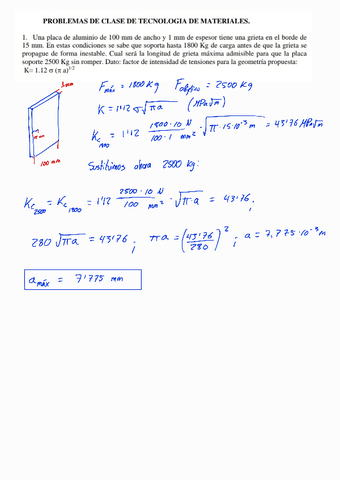 PROBLEMAS DE CLASE DE TECNOLOGIA DE MATERIALES.
1. Una placa de aluminio de 100 mm de ancho y 1 mm de espesor tiene una grieta en el borde de
15 mm. En estas condiciones se sabe que soporta hasta 1800 Kg de carga antes de que la grieta se
propague de forma inestable. Cual será la longitud de grieta máxima admisible para que la placa
soporte 2500 Kg sin romper. Dato: factor de intensidad de tensiones para la geometría propuesta:
K= 1.12 σ (π a)^1/2
F máx = 1800 Kg F objetivo = 2500 Kg
K = 1'12 σ √π a (MPa√m)
K c 1800 = 1'12 1800·10 N / 100·1 mm² · √π·15·10⁻³ m = 43'76 MPa√m
100 mm
Sustituimos ahora 2500 Kg:
K c 2500 = K c 1800 = 1'12 2500·10 N / 100 mm² · √π·a = 43'76 ;
280 √π a = 43'76 ; π a = (43'76 / 280)² ; a = 7,775·10⁻³ m
a máx = 7'775 mm